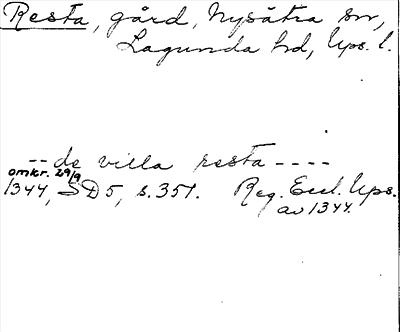 Resta, gård, Nysätra sn,
Lagunda hd, Ups. l.
-- de villa resta ----
omkr. 29/9
1344, SD5, s. 351. Reg. Eccl. Ups.
av 1344.